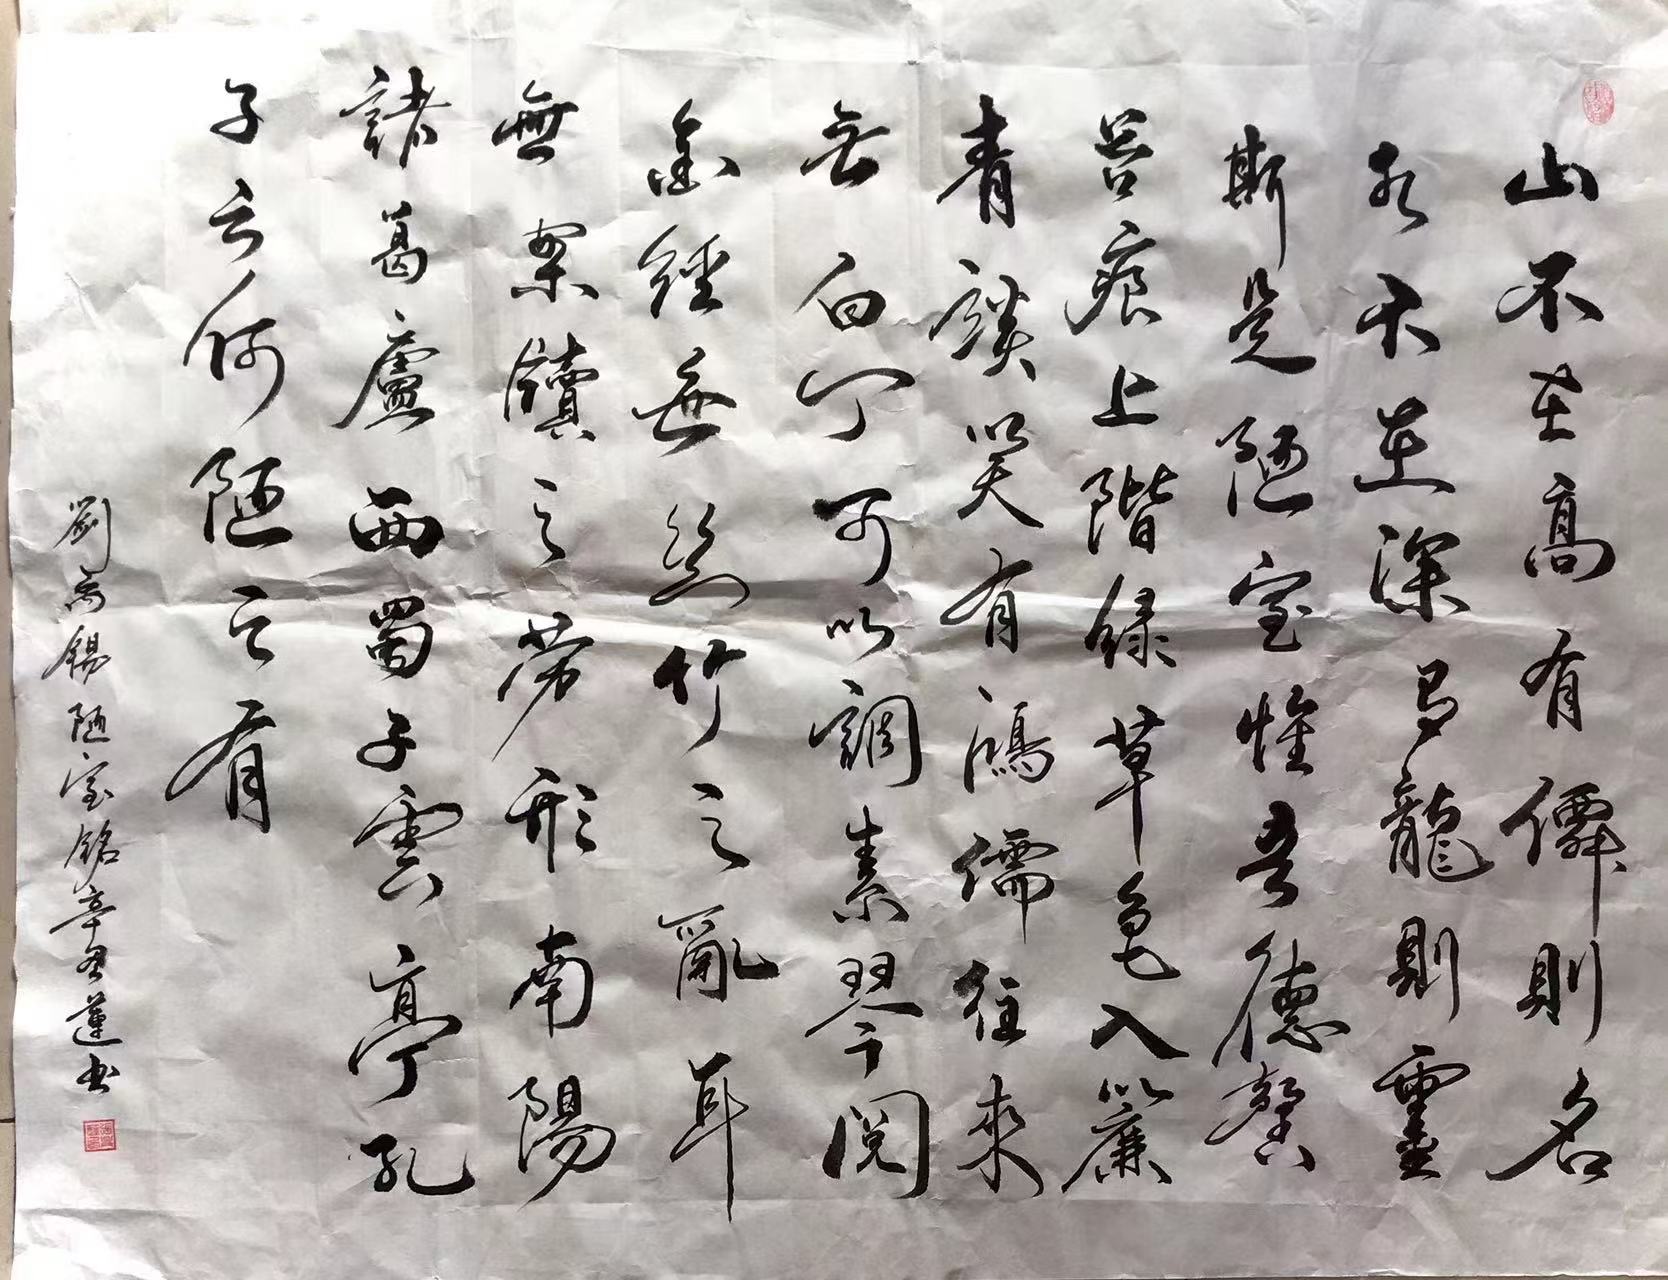 山不在高有僊則名
水不在深有龍則靈
斯是陋室惟吾德馨
苔痕上階緑草色入簾
青談笑有鴻儒往來
无白丁可以調素琴閱
金經無絲竹之亂耳
無案牘之劳形南陽
諸葛廬西蜀子雲亭孔
子云何陋之有
劉禹錫陋室銘辛丑蓮书